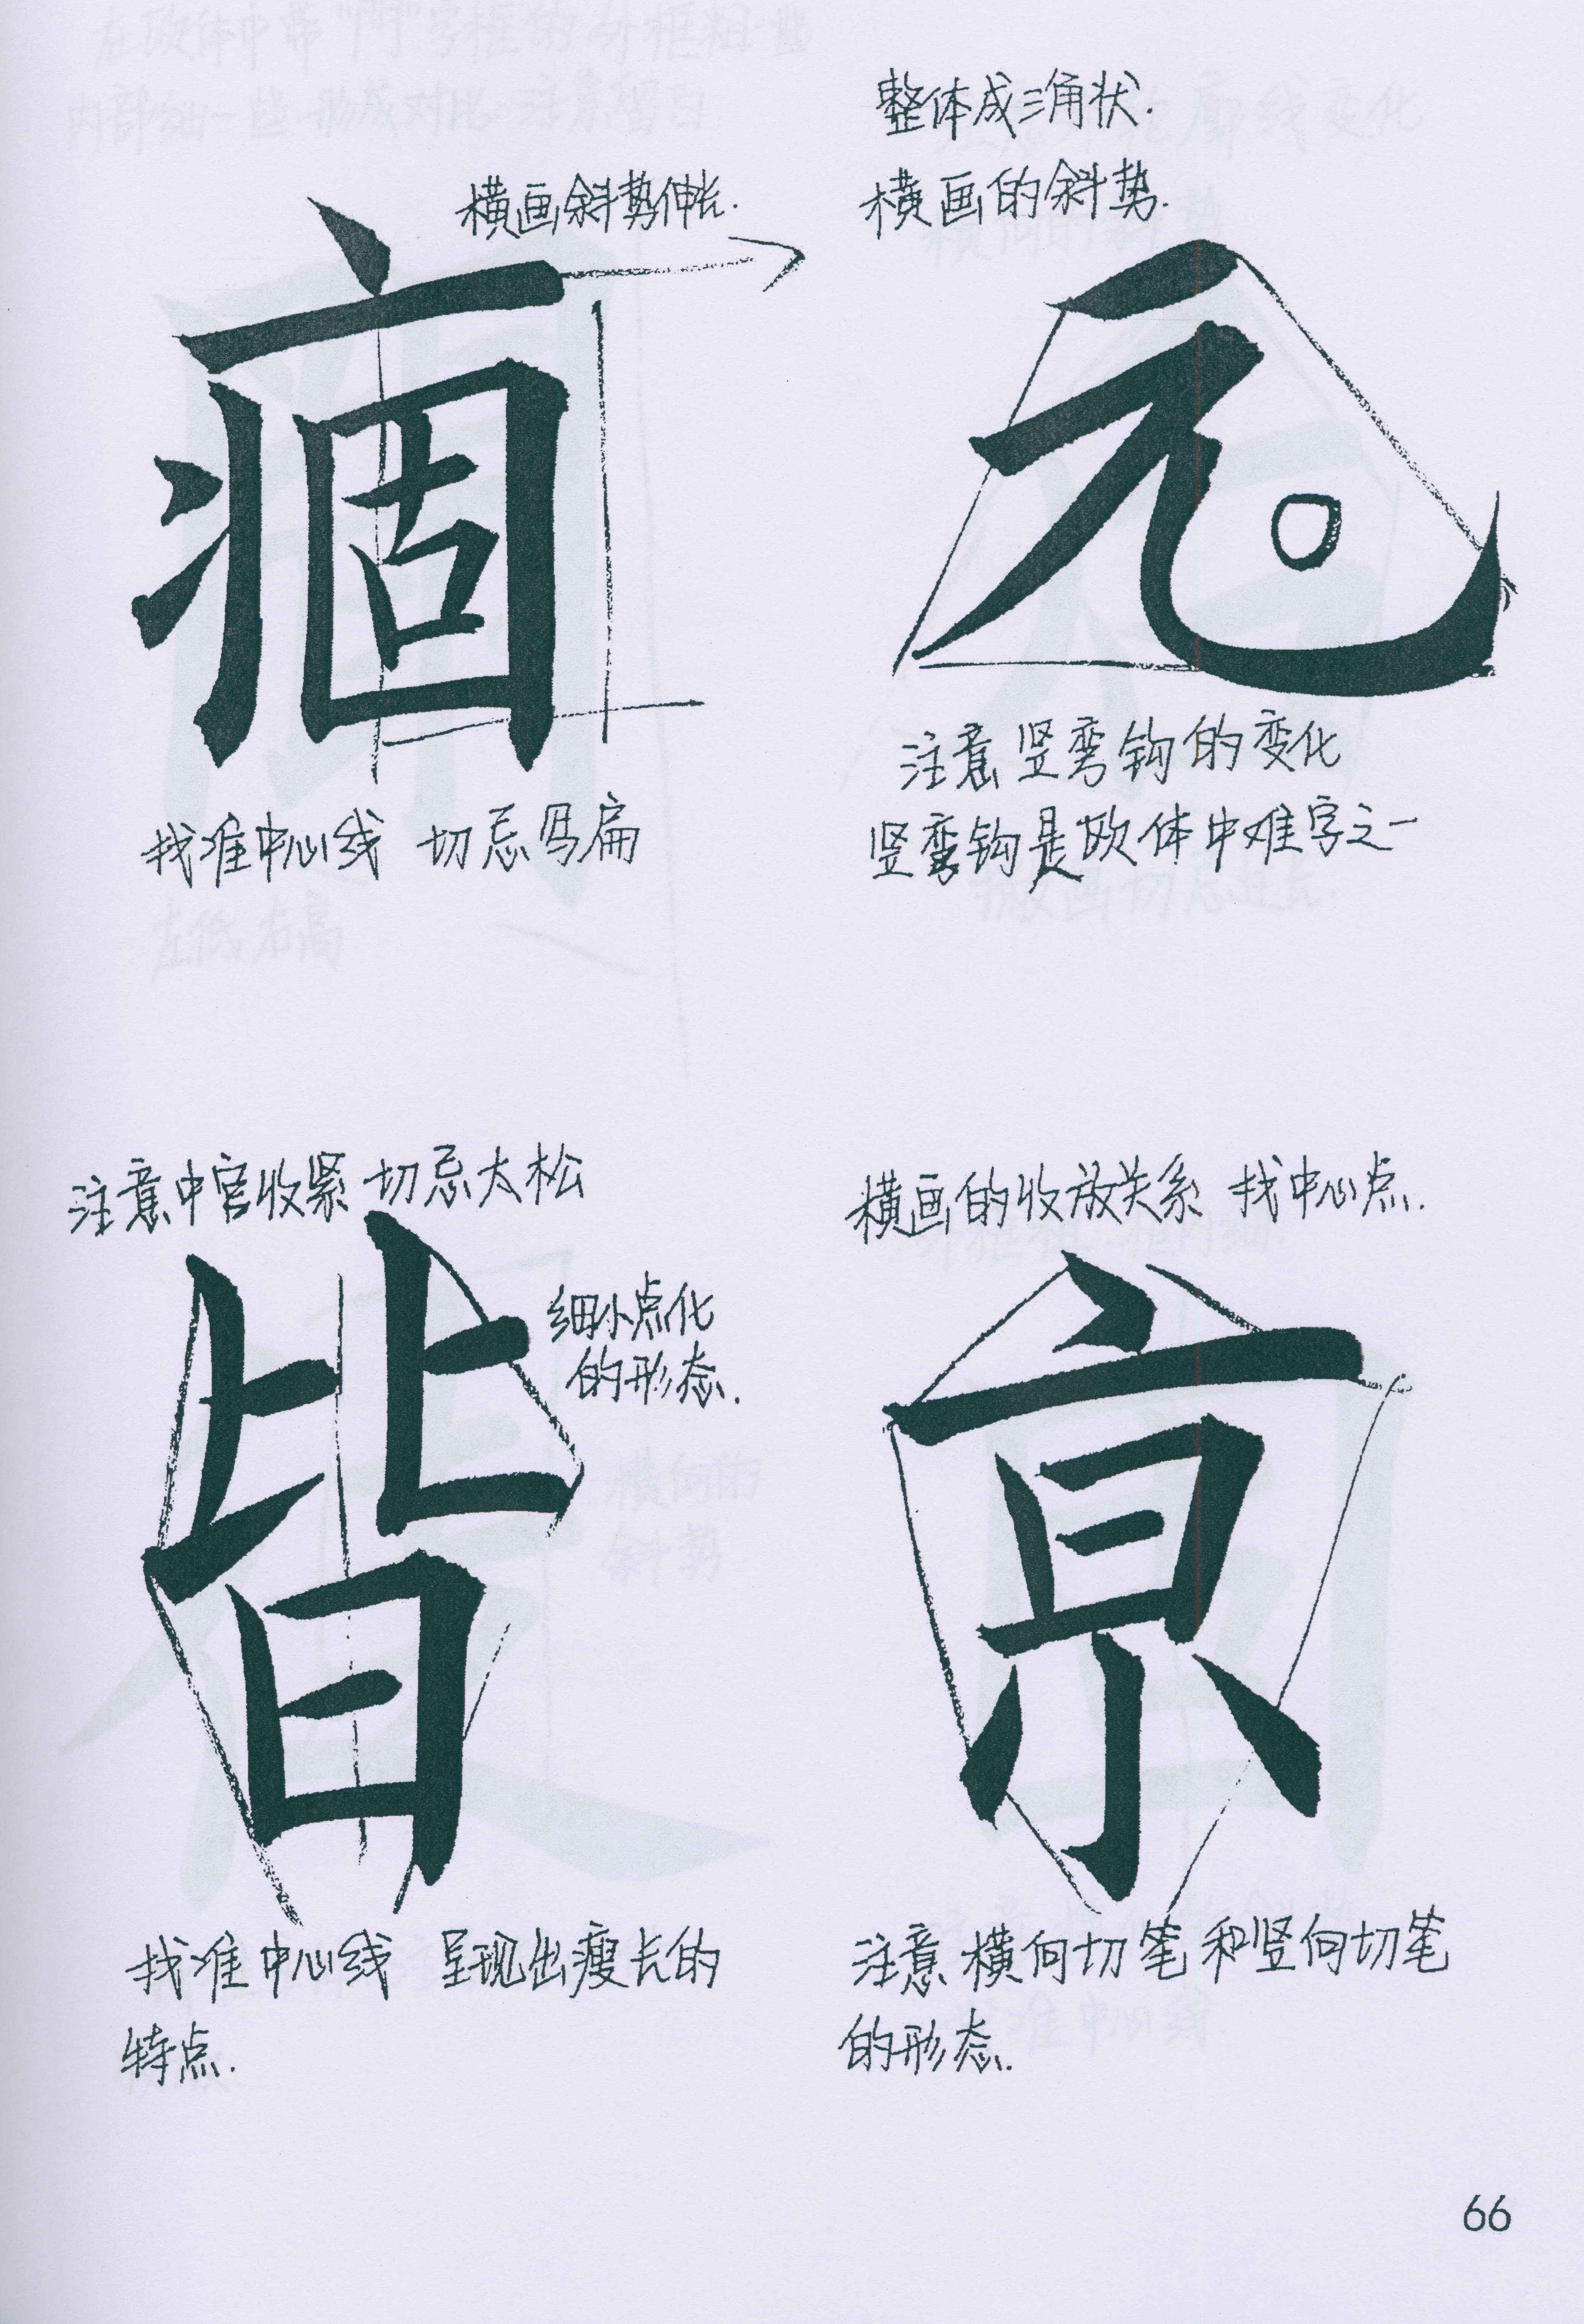 整体成三角状.
横画斜势伸长.
横画的斜势.
痼
元
注意竖弯钩的变化
找准中心线 切忌写扁
竖弯钩是欧体中难字之一
注意中宫收紧 切忌太松
横画的收放关系 找中心点.
细小点化
的形态.
皆
京
找准中心线 呈现出瘦长的
特点.
注意横向切笔和竖向切笔
的形态.
66